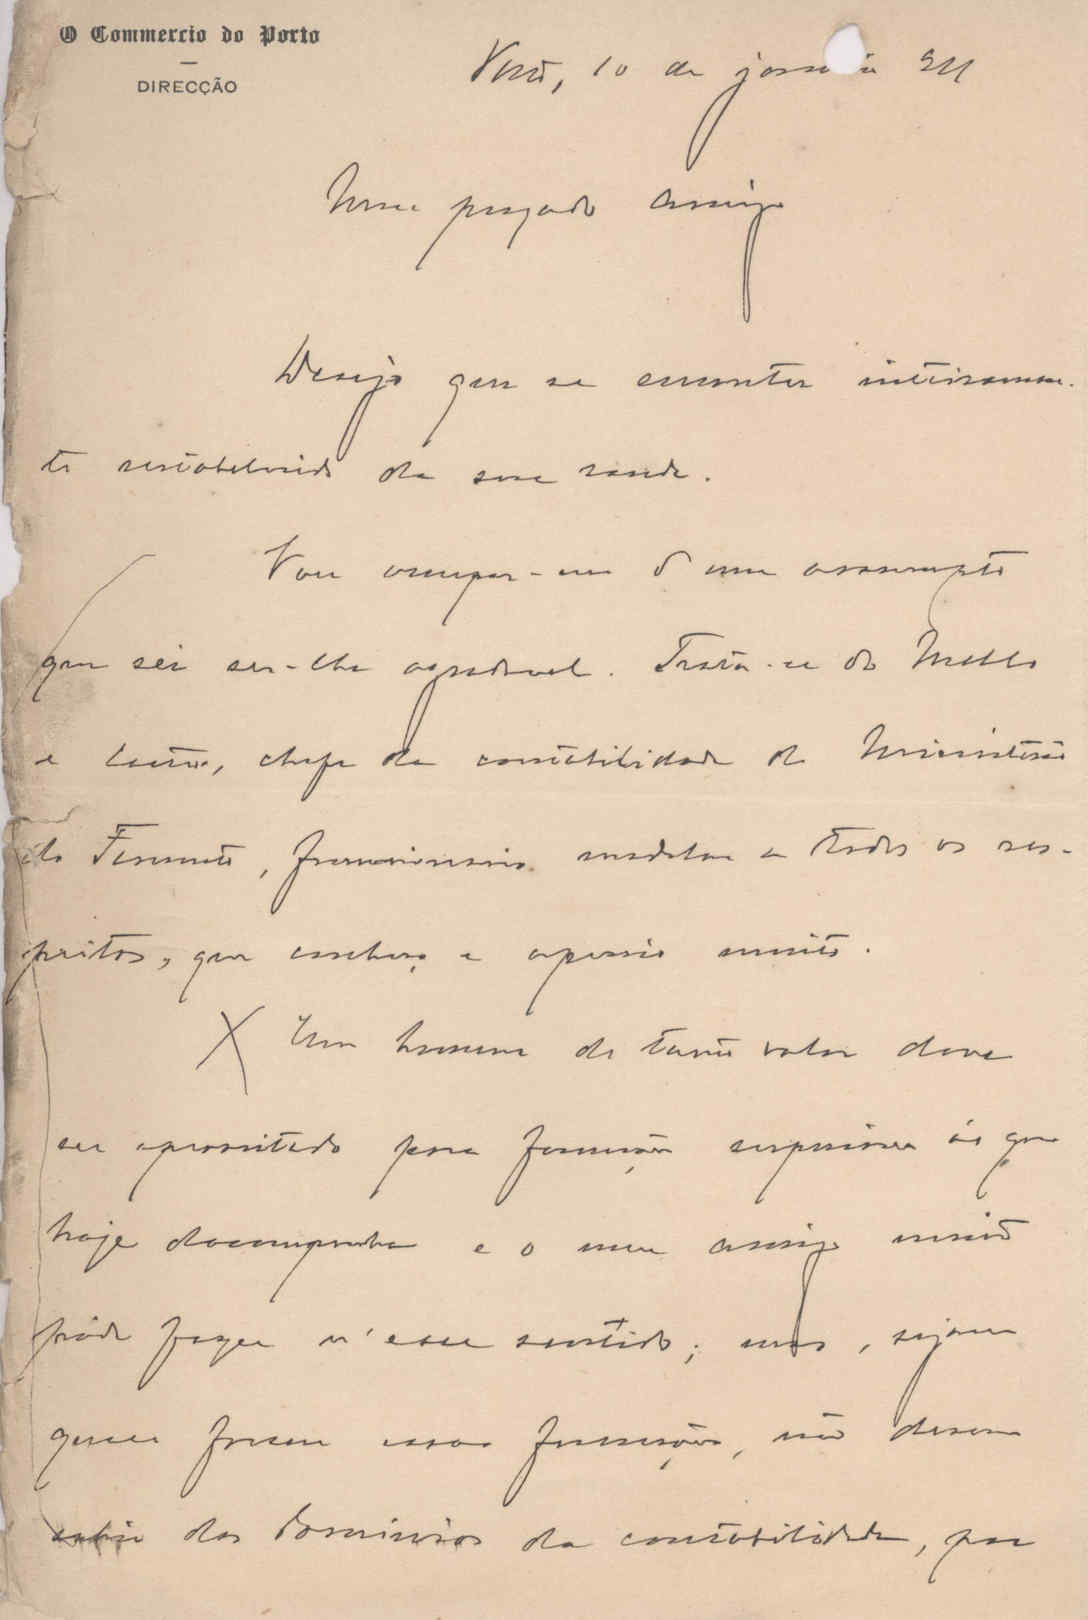 O Commercio do Porto
DIRECÇÃO
Porto, 10 de janeiro 911
Meu prezado amigo
Desejo que se encontre inteiramen-
te restabelecido da sua saude.
Vou occupar-me d'um assumpto
que sei ser-lhe agradavel. Trata-se do Mello
e , chefe da contabilidade do Ministerio
do Fomento, funccionario modelar a todos os res-
peitos, que conheço e aprecio muito.
X Um homem de tanto valor deve
ser aproveitado para funcções superiores ás que
hoje desempenha e o meu amigo muito
póde fazer n'esse sentido; mas, sejam
quaes forem essas funcções, não devem
sahir dos dominios da contabilidade, por